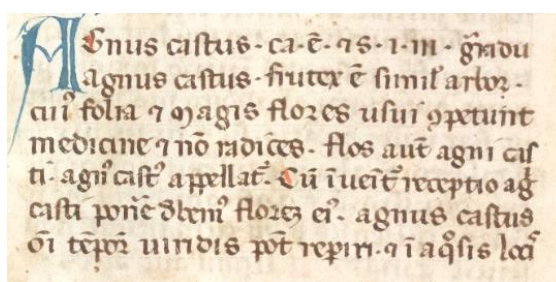 AGnus castus · ca · ē · ⁊ s · i · III · gͣdu
agnus castus · frutex ē simil᷑ arbor ·
cui᷒ folia ⁊ magis flores usui ꝯpetunt
medicine ⁊ nō radices · flos aut̄ agni caſ
ti · agn᷒ caſt᷒ appellat᷑ · Cū īueīt᷑ receptio ag̃
casti ponē dbem᷒ florez ei᷒ · agnus castus
oī tēpor̄ uiridis pōt reperiri · ⁊ ī aqͦsis loci᷒